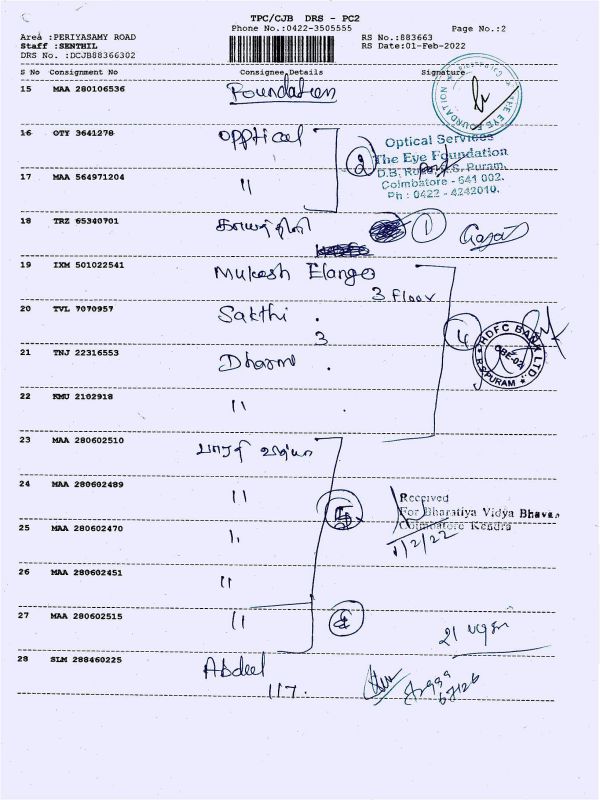 TPC/CJB DRS - PC2
Phone No.:0422-3505555
Page No.:2
Area :PERIYASAMY ROAD
RS No.:883663
Staff :SENTHIL
RS Date:01-Feb-2022
DRS No. :DCJB88366302
S No Consignment No Consignee Details Signature
15 MAA 280106536 Foundation
16 OTY 3641278 Opptical
2
Optical Services
The Eye Foundation
D.B. Road, R.S. Puram,
Coimbatore - 641 002.
Ph : 0422 - 4242010.
17 MAA 564971204 "
18 TRZ 65340701 காயத்திரி 1
19 IXM 501022541 Mukesh Elango
3 Floor
20 TVL 7070957 Sakthi .
3
4
HDFC BANK LTD.
R.S. PURAM
21 TNJ 22316553 Dharani .
22 KMU 2102918 "
23 MAA 280602510 பாரதி வித்யா
24 MAA 280602489 "
Received
For Bharatiya Vidya Bhavan
Coimbatore Kendra
1/2/22
25 MAA 280602470 "
26 MAA 280602451 "
27 MAA 280602515 "
28 SLM 288460225 Abdeel
117.